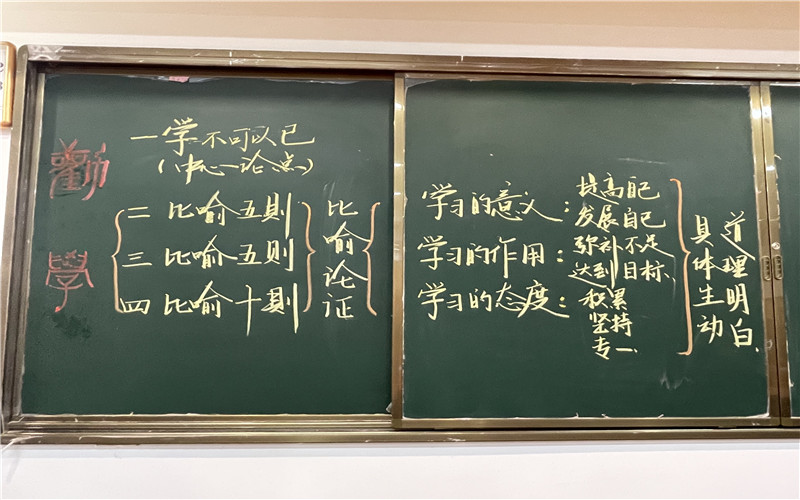 勸學
一学不可以已
(中心论点)
二 比喻五則
三 比喻五则
四 比喻十則
比喻论证
学习的意义:
培高自己
发展自己
学习的作用:
弥补不足
达到目标
学习的态度:
积累
坚持
专一
道理明白
具体生动